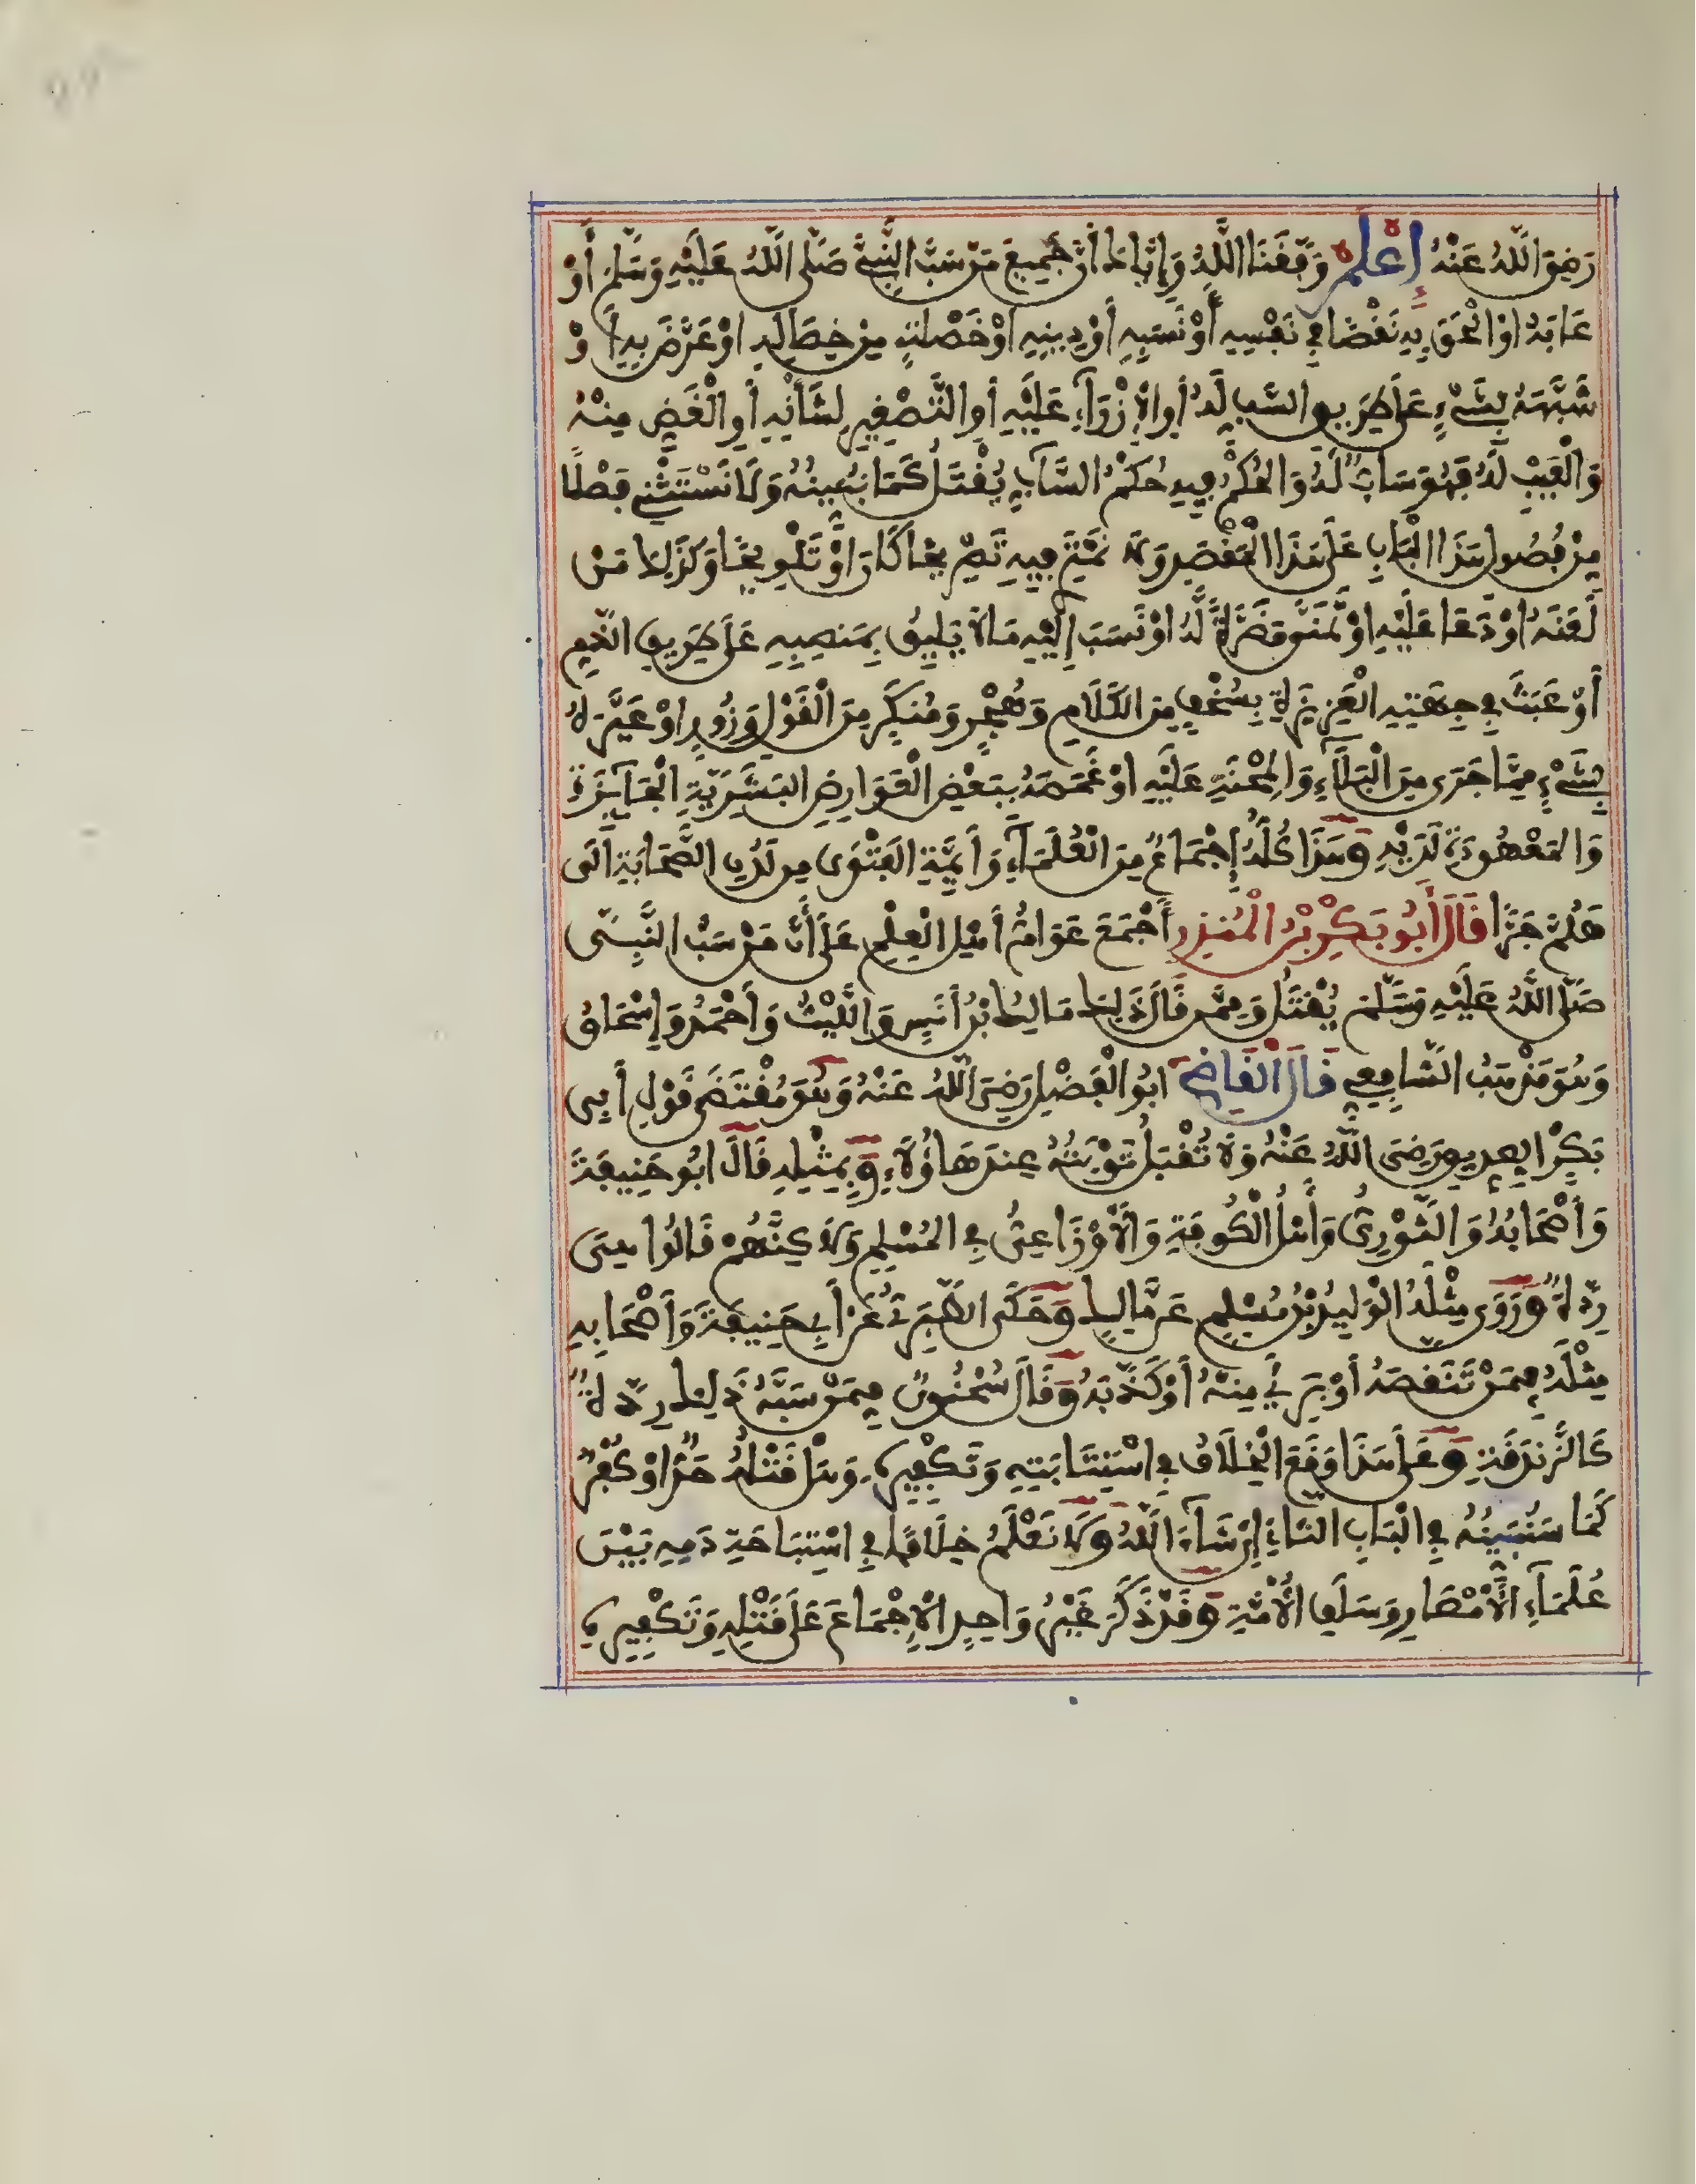 رَضِيَ اللَّهُ عَنْهُ إِعْلَمْ وَفَّقَنَا اللَّهُ وَإِيَّاكَ أَنَّ جَمِيعَ مَنْ سَبَّ النَّبِيَّ صَلَّى اللَّهُ عَلَيْهِ وَسَلَّمَ أَوْ
عَابَهُ اوْ الْحَقَ بِهِ نَقْصًا فِي نَفْسِهِ أَوْ نَسَبِهِ أَوْ دِينِهِ اوْ خَصْلَةٍ مِنْ خِصَالِهِ اوْ عَرَّضَ بِهِ أَوْ
شَبَّهَهُ بِشَيْءٍ عَلَى طَرِيقِ السَّبِّ لَهُ أَوِ الاِزْرَآءِ عَلَيْهِ أَوِ التَّصْغِيرِ لِشَأْنِهِ أَوِ الْغَضِّ مِنْهُ
وَالْعَيْبِ لَهُ فَهُوَ سَابٌّ لَهُ وَالْحُكْمُ فِيهِ حُكْمُ السَّآبِّ يُقْتَلُ كَمَا نُبَيِّنُهُ وَلَا نَسْتَثْنِي فَصْلًا
مِنْ فُصُولِ هَذَا الْبَابِ عَلَى هَذَا الْمَقْصَدِ وَلَا نَمْتَرِي فِيهِ تَصْرِيحًا كَانَ اوْ تَلْوِيحًا وَكَذَلِكَ مَنْ
لَعَنَهُ اوْ دَعَا عَلَيْهِ اوْ تَمَنَّى مَضَرَّةً لَهُ اوْ نَسَبَ إِلَيْهِ مَا لاَ يَلِيقُ بِمَنصِبِهِ عَلَى طَرِيقِ الذَّمِّ
أَوْ عَبَثَ فِي جِهَتِهِ الْعَزِيزَةِ بِسُخْفٍ مِنَ الْكَلَامِ وَهُجْرٍ وَمُنكَرٍ مِنَ الْقَوْلِ وَزُورٍ اوْ عَيَّرَهُ
بِشَيْءٍ مِمَّا جَرَى مِنَ الْبَلَآءِ وَالْمِحْنَةِ عَلَيْهِ اوْ غَمَصَهُ بِبَعْضِ الْعَوَارِضِ الْبَشَرِيَّةِ الْجَآئِزَةِ
وَالْمَعْهُودَةِ لَدَيْهِ وَهَذَا كُلُّهُ إِجْمَاعٌ مِنَ الْعُلَمَآءِ وَأَئِمَّةِ الْفَتْوَى مِن لَّدُنِ الصَّحَابَةِ الَى
هَلُمَّ جَرًّا قَالَ أَبُو بَكْرِ بْنُ الْمُنذِرِ أَجْمَعَ عَوَامُّ أَهْلِ الْعِلْمِ عَلَى أَنَّ مَنْ سَبَّ النَّبِيَّ
صَلَّى اللَّهُ عَلَيْهِ وَسَلَّمَ يُقْتَلُ وَمِمَّن قَالَ ذَلِكَ مَالِكُ بْنُ أَنَسٍ وَاللَّيْثُ وَأَحْمَدُ وَإِسْحَاقُ
وَهُوَ مَذْهَبُ الشَّافِعِي قَالَ الْقَاضِي ابُو الْفَضْلِ رَضِيَ اللَّهُ عَنْهُ وَهُوَ مُقْتَضَى قَوْلِ أَبِي
بَكْرٍ الصِّدِّيقِ رَضِيَ اللَّهُ عَنْهُ وَلَا تُقْبَلُ تَوْبَتُهُ عِندَ هَاؤُلَآءِ وَبِمِثْلِهِ قَالَ ابُو حَنِيفَةَ
وَأَصْحَابُهُ وَالثَّوْرِيُّ وَأَهْلُ الْكُوفَةِ وَالْأَوْزَاعِيُّ فِي الْمُسْلِمِ وَلَاكِنَّهُمْ قَالُوا هِيَ
رِدَّةٌ وَرَوَى مِثْلَهُ الْوَلِيدُ بْنُ مُسْلِمٍ عَن مَّالِكٍ وَحَكَى الطَّبَرِيُّ عَنْ أَبِي حَنِيفَةَ وَأَصْحَابِهِ
مِثْلَهُ فِيمَنْ تَنَقَّصَهُ أَوْ بَرِئَ مِنْهُ أَوْ كَذَّبَهُ وَقَالَ سُحْنُونٌ فِيمَنْ سَبَّهُ ذَلِكَ رِدَّةٌ
كَالزَّندَقَةِ وَعَلَى هَذَا وَقَعَ الْخِلَافُ فِي اسْتِتَابَتِهِ وَتَكْفِيرِهِ وَهَلْ قَتْلُهُ حَدٌّ اوْ كُفْرٌ
كَمَا سَنُبَيِّنُهُ فِي الْبَابِ الثَّانِي إِن شَآءَ اللَّهُ وَلَا نَعْلَمُ خِلَافًا فِي اسْتِبَاحَةِ دَمِهِ بَيْنَ
عُلَمَآءِ الْأَمْصَارِ وَسَلَفِ الْأُمَّةِ وَقَدْ ذَكَرَ غَيْرُ وَاحِدٍ الْإِجْمَاعَ عَلَى قَتْلِهِ وَتَكْفِيرِهِ